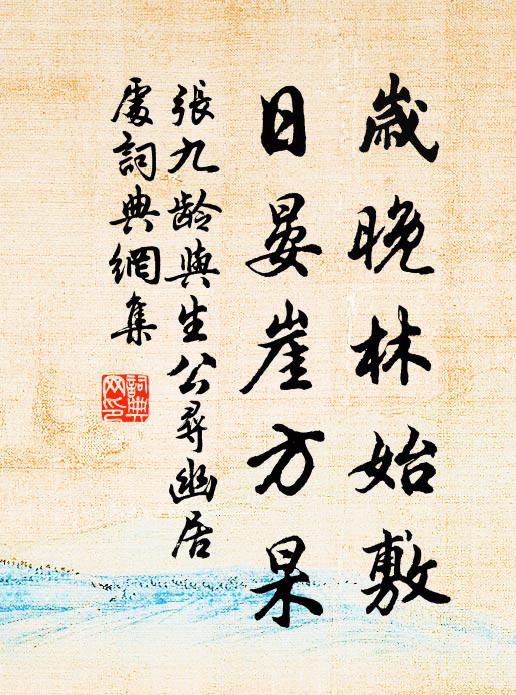 歲晚林始敷
日晏崖方杲
張九龄與生公尋幽居
處詞典網集
詞典
网印